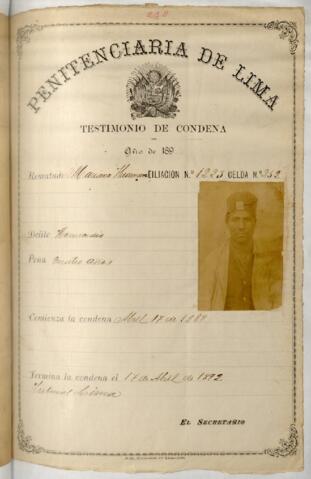 PENITENCIARIA DE LIMA
TESTIMONIO DE CONDENA
Año de 189
Rematado Mariano FILIACION N.º 1225 CELDA N.º 252
Delito Homicidio
Pena años
Comienza la condena Abril 17 de
Termina la condena el 17 de Abril de 1892
Tribunal Lima
EL SECRETARIO